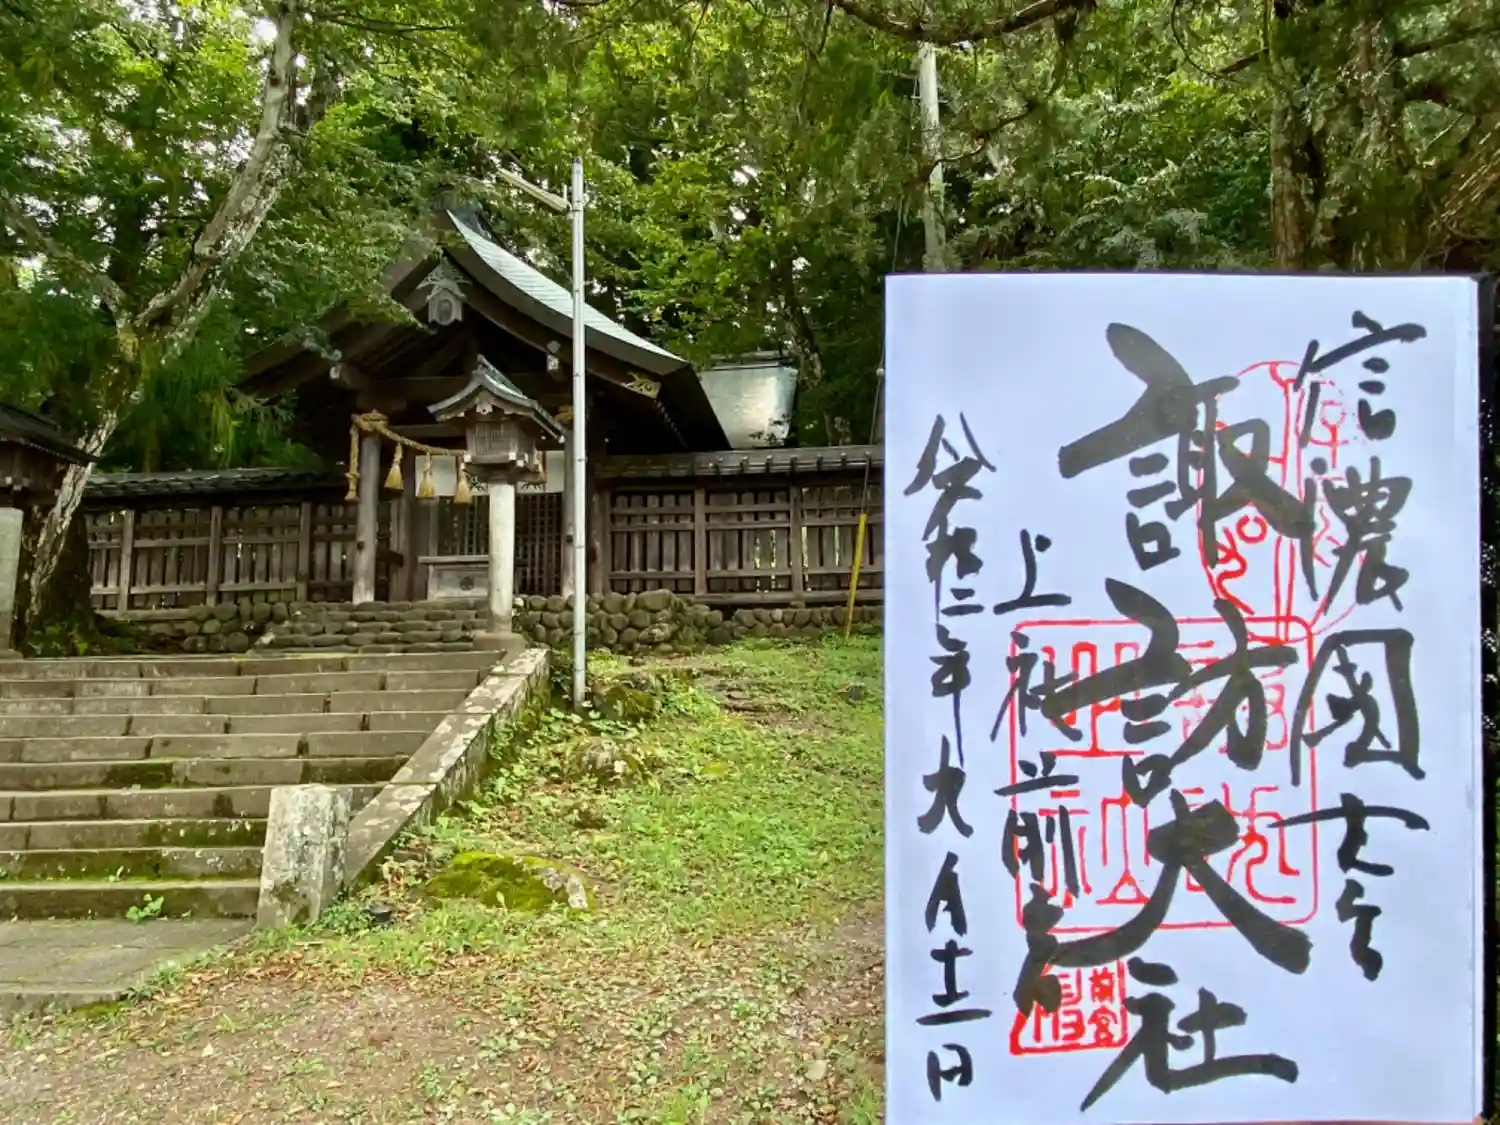 信濃國一之宮
諏訪大社
上社前宮
令和二年九月十一日
前宮